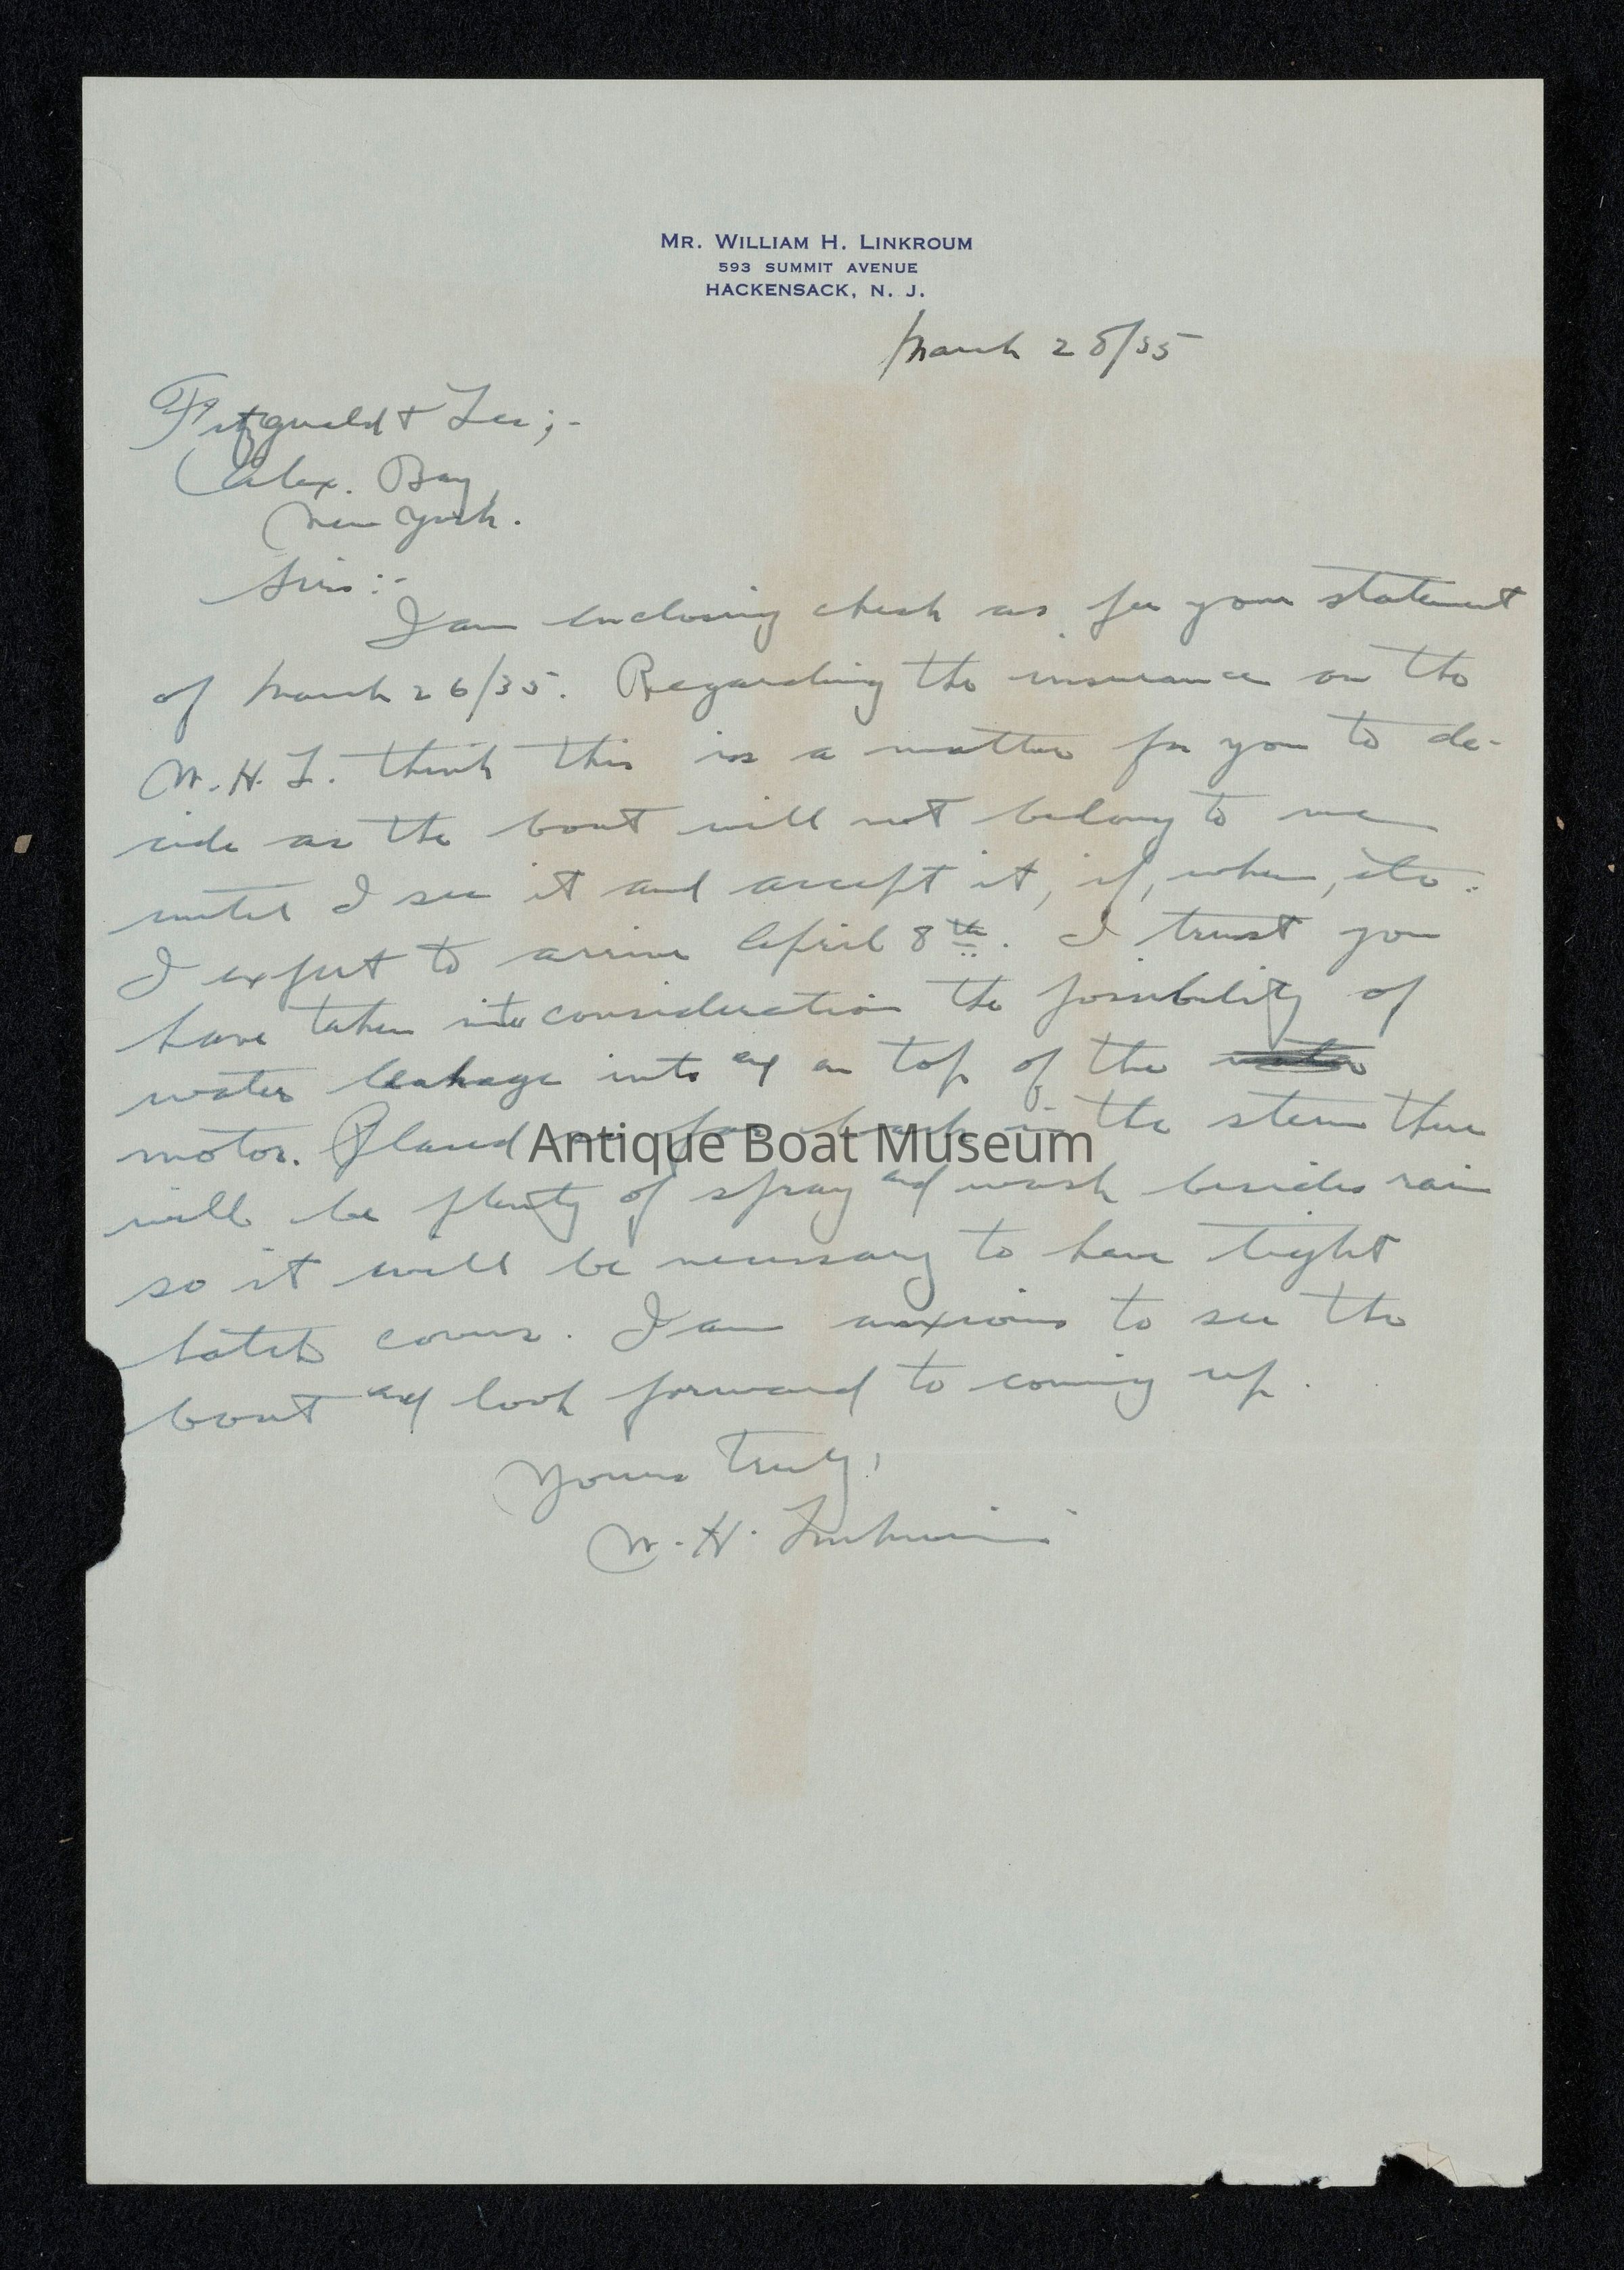 MR. WILLIAM H. LINKROUM
593 SUMMIT AVENUE
HACKENSACK, N. J.
March 28/35
Fitzgerald + Lee;-
Alex. Bay,
New York.
Sirs:-
I am enclosing check as per your statement
of March 26/35. Regarding the insurance on the
W. H. L. think this is a matter for you to de-
cide as the boat will not belong to me
until I see it and accept it, if, when, etc.
I expect to arrive April 8th. I trust you
have taken into consideration the possibility of
water leakage into and on top of the water
motor. Placed so far back in the stern there
will be plenty of spray and wash besides rain
so it will be necessary to have tight
hatch covers. I am anxious to see the
boat and look forward to coming up.
Yours truly,
W. H. Linkroum
Antique Boat Museum